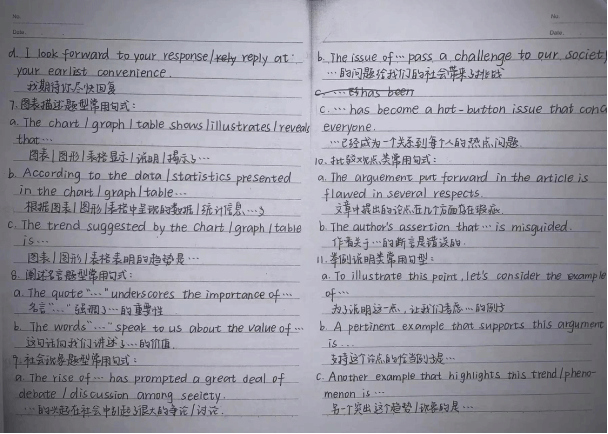 No.
Date.
d. I look forward to your response / rely reply at
your earlist convenience.
我期待你尽快回复
7. 图表描述题型常用句式:
a. The chart / graph / table shows / illustrates / reveals
that…
图表 / 图形 / 表格显示 / 说明 / 揭示了…
b. According to the data / statistics presented
in the chart / graph / table…
根据图表 / 图形 / 表格中呈现的数据 / 统计信息…
c. The trend suggested by the chart / graph / table
is…
图表 / 图形 / 表格表明的趋势是…
8. 阐述名言题型常用句式:
a. The quote "…" underscores the importance of…
名言"…"强调了…的重要性
b. The words "…" speak to us about the value of…
这句话向我们讲述了…的价值
9. 社会现象题型常用句式:
a. The rise of … has prompted a great deal of
debate / discussion among seeiety.
…的兴起在社会中引起了很大的争论 / 讨论.
No.
Date.
b. The issue of … pass a challenge to our societ
…的问题给我们的社会带来了挑战
c. … has been
c. … has become a hot-button issue that conc
everyone.
…已经成为一个关系到每个人的热点问题.
10. 批驳观点类常用句式:
a. The arguement put forward in the article is
flawed in several respects.
文章中提出的论点在几个方面存在瑕疵
b. The author's assertion that … is misguided.
作者关于…的断言是错误的.
11. 举例说明类常用句型:
a. To illustrate this point, let's consider the example
of…
为了说明这一点, 让我们考虑…的例子
b. A pertinent example that supports this argument
is…
支持这个论点的恰当例子是…
c. Another example that highlights this trend / pheno-
menon is…
另一个突出这个趋势 / 现象的是…